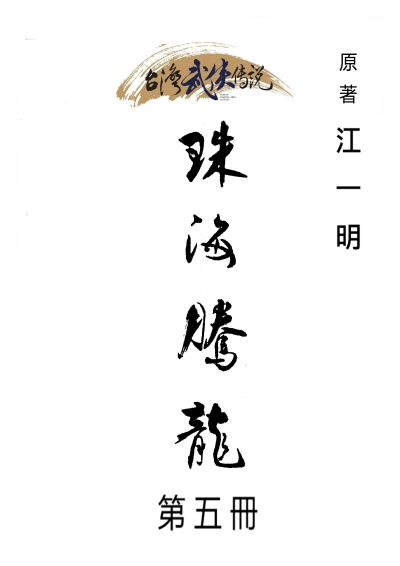 台灣武侠传说
原著 江一明
珠海騰龍
第五冊